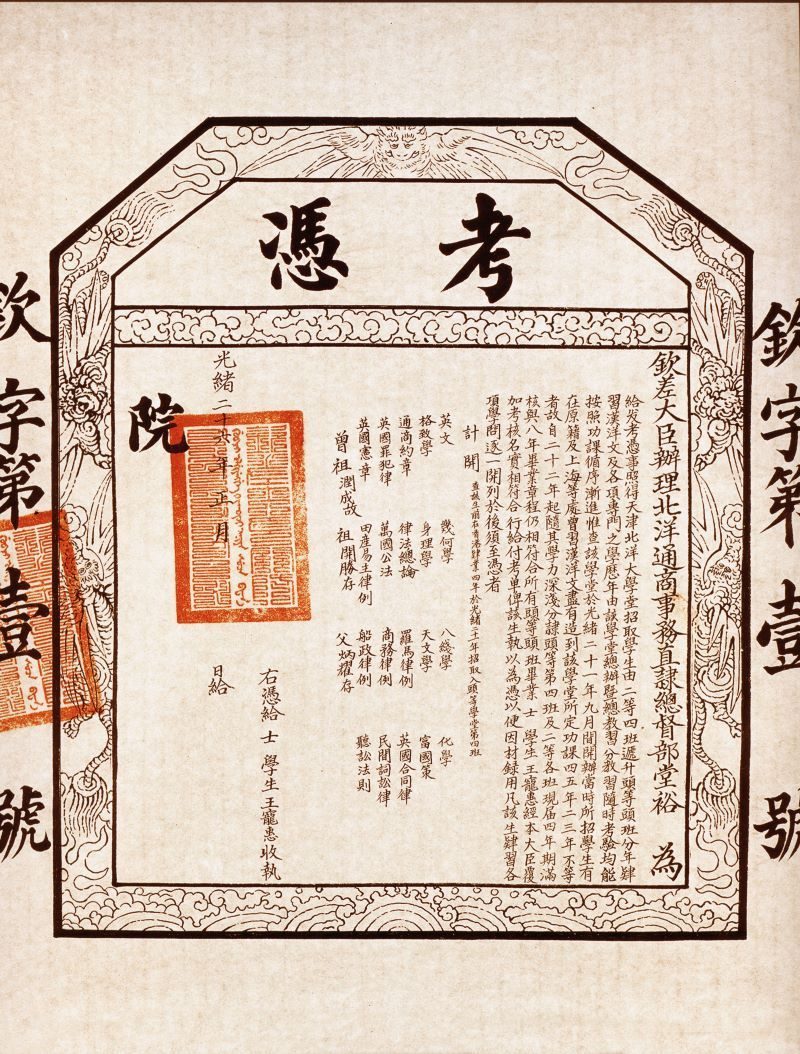 欽字第壹號
考憑
欽差大臣辦理北洋通商事務直隸總督部堂裕 為
給發考憑事照得天津北洋大學堂招取學生由二等四班遞升頭等頭班分年肄
習漢洋文及各項專門之學歷年由該學堂總辦暨總教習分教習隨時考驗均能
按照功課循序漸進惟查該學堂於光緒二十一年九月間開辦當時所招學生有
在原籍及上海等處曾習漢洋文盡有造到該學堂所定功課四五年二三年不等
者故自二十二年起隨其學力深淺分隸頭等第四班及二等各班現屆四年期滿
核與八年畢業章程仍相符合所有頭等頭班畢業士 學生王寵惠經本大臣覆
加考核名實相符合行給付考單俾該生執以為憑以便因材録用凡該生肄習各
項學問逐一開列於後須至憑者
計開 查該生前在香港肄業四年於光緒二十一年招取入頭等學堂第四班
英文 幾何學 八綫學 化學
格致學 身理學 天文學 富國策
通商約章 律法總論 羅馬律例 英國合同律
英國罪犯律 萬國公法 商務律例 民間詞訟律
英國憲章 田產易主律例 船政律例 聽訟法則
曾祖潤成故 祖開勝存 父炳耀存
右憑給 士 學生王寵惠收執
光緒二十六年正月 日給
院
欽字第壹號